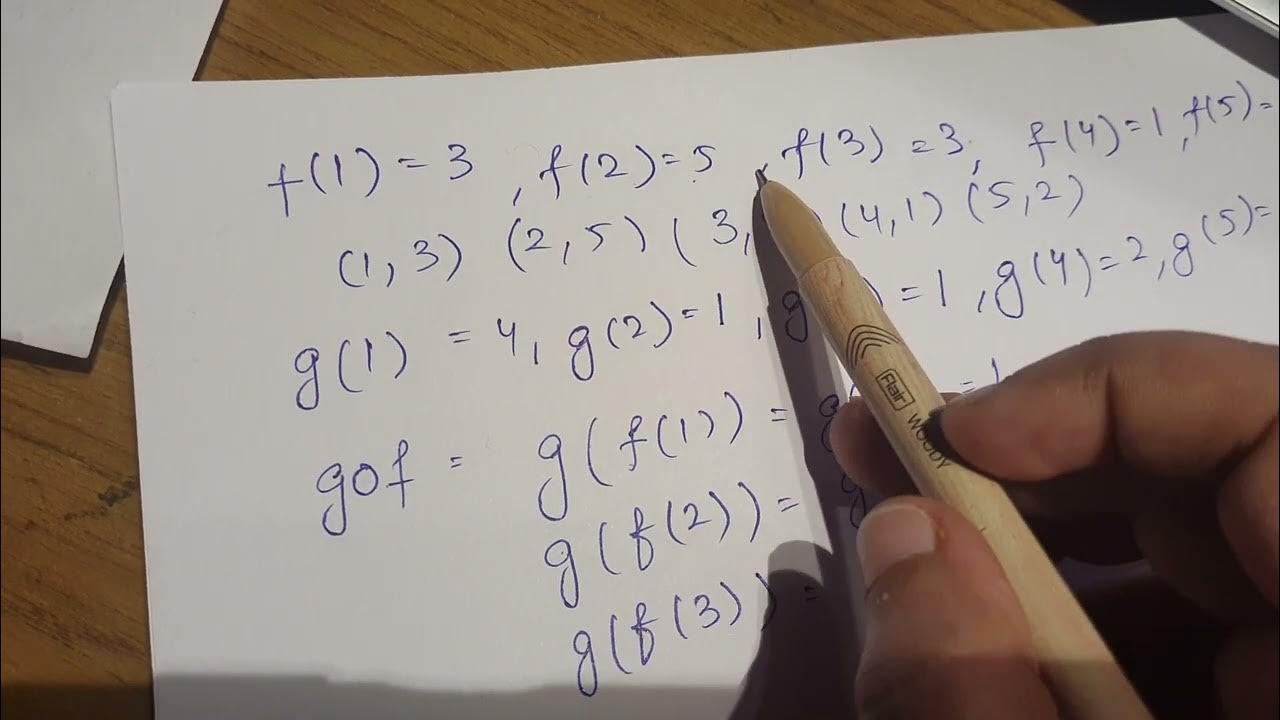 f(1) = 3 , f(2) = 5 , f(3) = 3, f(4) = 1, f(5) =
(1,3) (2,5) (3, ) (4,1) (5,2)
g(1) = 4, g(2) = 1, g ) = 1, g(4) = 2, g(5) =
gof = g(f(1)) = g = 1
g(f(2)) = g
g(f(3)) =
Flair WOODY